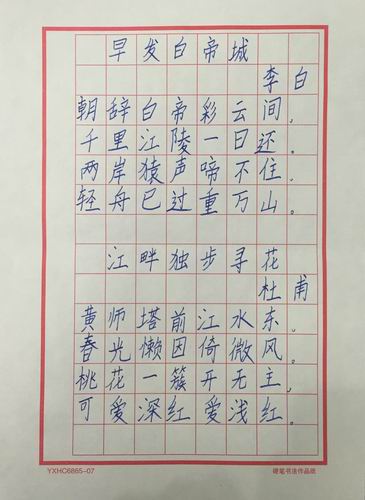 早发白帝城
李白
朝辞白帝彩云间,
千里江陵一日还.
两岸猿声啼不住.
轻舟已过重万山。
江畔独步寻花
杜甫
黄师塔前江水东。
春光懒因倚微风。
桃花一簇开无主,
可爱深红爱浅红。
YXHC6865-07
硬笔书法作品纸